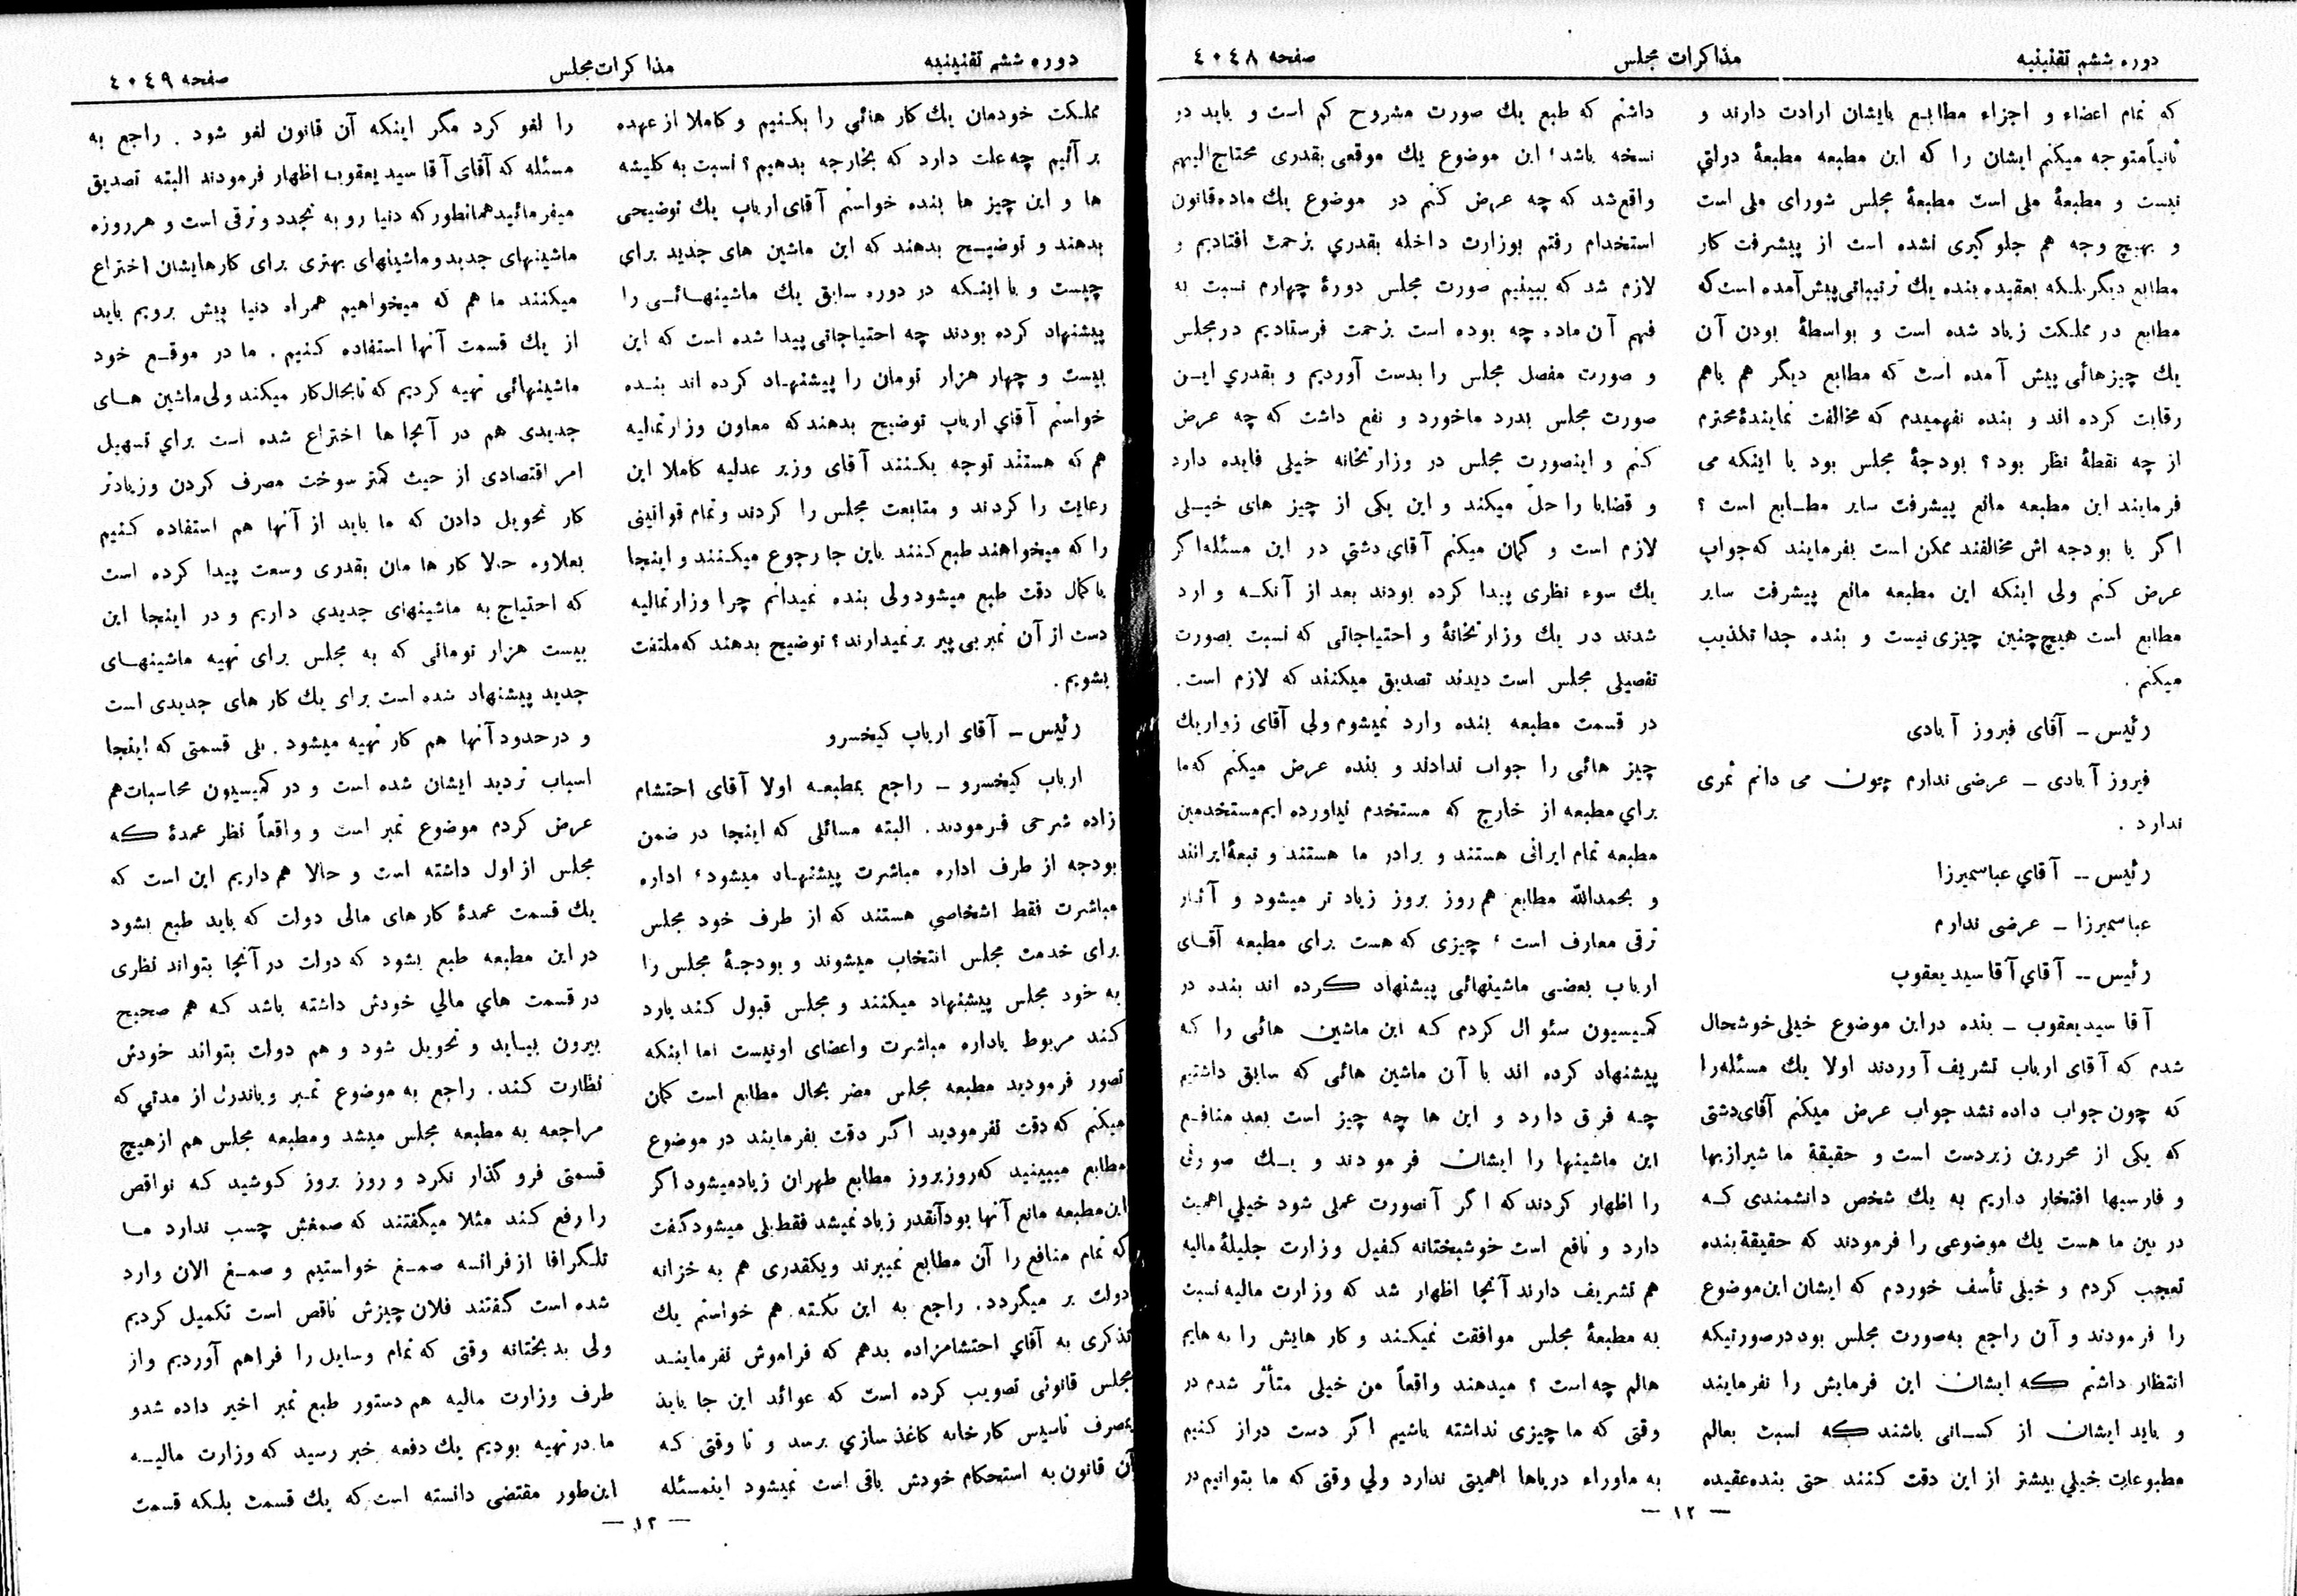 دوره ششم تقنینیه
مذاکرات مجلس
صفحه ٤٠٤٨
که تمام اعضاء و اجزاء مطابع بایشان ارادت دارند و
ثانیاً متوجه میکنم ایشان را که این مطبعه مطبعهٔ دولتی
نیست و مطبعهٔ ملی است مطبعهٔ مجلس شورای ملی است
و بهیچ وجه هم جلوگیری نشده است از پیشرفت کار
مطابع دیگر بلکه بعقیده بنده یك ترتیباتی پیش آمده است که
مطابع در مملکت زیاد شده است و بواسطهٔ بودن آن
یك چیزهائی پیش آمده است که مطابع دیگر هم باهم
رقابت کرده اند و بنده نفهمیدم که مخالفت نمایندهٔ محترم
از چه نقطهٔ نظر بود ؟ بودجهٔ مجلس بود یا اینکه می
فرمایند این مطبعه مانع پیشرفت سایر مطابع است ؟
اگر با بودجه اش مخالفند ممکن است بفرمایند که جواب
عرض کنم ولی اینکه این مطبعه مانع پیشرفت سایر
مطابع است هیچ چنین چیزی نیست و بنده جدا تکذیب
میکنم .
رئیس ــ آقای فیروز آبادی
فیروز آبادی ــ عرضی ندارم چون می دانم ثمری
ندارد .
رئیس ــ آقای عباسمیرزا
عباسمیرزا ــ عرضی ندارم
رئیس ــ آقای آقا سید یعقوب
آقا سید یعقوب ــ بنده در این موضوع خیلی خوشحال
شدم که آقای ارباب تشریف آوردند اولا یك مسئله را
که چون جواب داده نشد جواب عرض میکنم آقای دشتی
که یکی از محررین زبردست است و حقیقة ما شیرازیها
و فارسیها افتخار داریم به یك شخص دانشمندی که
در بین ما هست یك موضوعی را فرمودند که حقیقة بنده
تعجب کردم و خیلی تأسف خوردم که ایشان این موضوع
را فرمودند و آن راجع به صورت مجلس بود در صورتیکه
انتظار داشتم که ایشان این فرمایش را نفرمایند
و باید ایشان از کسانی باشند که نسبت بعالم
مطبوعات خیلی بیشتر از این دقت کنند حتی بنده عقیده
داشتم که طبع یك صورت مشروح کم است و باید دو
نسخه باشد ، این موضوع یك موقعی بقدری محتاج الیهم
واقع شد که چه عرض کنم در موضوع یك ماده قانون
استخدام رفتم بوزارت داخله بقدری بزحمت افتادیم و
لازم شد که ببینیم صورت مجلس دورهٔ چهارم نسبت به
فهم آن ماده چه بوده است بزحمت فرستادیم در مجلس
و صورت مفصل مجلس را بدست آوردیم و بقدری این
صورت مجلس بدرد ما خورد و نفع داشت که چه عرض
کنم و اینصورت مجلس در وزارتخانه خیلی فایده دارد
و قضایا را حل میکند و این یکی از چیز های خیلی
لازم است و گمان میکنم آقای دشتی در این مسئله اگر
یك سوء نظری پیدا کرده بودند بعد از آنکه وارد
شدند در یك وزارتخانهٔ و احتیاجاتی که نسبت بصورت
تفصیلی مجلس است دیدند تصدیق میکنند که لازم است .
در قسمت مطبعه بنده وارد نمیشوم ولی آقای زوار یك
چیز هائی را جواب ندادند و بنده عرض میکنم که ما
برای مطبعه از خارج که مستخدم نیاورده ایم مستخدمین
مطبعه تمام ایرانی هستند و برادر ما هستند و تبعهٔ ایرانند
و بحمدالله مطابع هم روز بروز زیاد تر میشود و آثار
ترقی معارف است ، چیزی که هست برای مطبعه آقای
ارباب بعضی ماشینهائی پیشنهاد کرده اند بنده در
کمیسیون سئوال کردم که این ماشین هائی را که
پیشنهاد کرده اند با آن ماشین هائی که سابق داشتیم
چه فرق دارد و این ها چه چیز است بعد منافع
این ماشینها را ایشان فرمودند و یك صورتی
را اظهار کردند که اگر آنصورت عملی شود خیلی اهمیت
دارد و نافع است خوشبختانه کفیل وزارت جلیلهٔ مالیه
هم تشریف دارند آنجا اظهار شد که وزارت مالیه نسبت
به مطبعهٔ مجلس موافقت نمیکند و کار هایش را به هایم
هالم چه است ؟ میدهند واقعاً من خیلی متأثر شدم در
وقتی که ما چیزی نداشته باشیم اگر دست دراز کنیم
به ماوراء دریاها اهمیتی ندارد ولی وقتی که ما بتوانیم در
— ١٢ —
دوره ششم تقنینیه
مذاکرات مجلس
صفحه ٤٠٤٩
مملکت خودمان یك کار هائی را بکنیم و کاملا از عهده
بر آئیم چه علت دارد که بخارجه بدهیم ؟ نسبت به کلیشه
ها و این چیز ها بنده خواستم آقای ارباب یك توضیحی
بدهند و توضیح بدهند که این ماشین های جدید برای
چیست و با اینکه در دوره سابق یك ماشینهائی را
پیشنهاد کرده بودند چه احتیاجاتی پیدا شده است که این
بیست و چهار هزار تومان را پیشنهاد کرده اند بنده
خواستم آقای ارباب توضیح بدهند که معاون وزارتمالیه
هم که هستند توجه بکنند آقای وزیر عدلیه کاملا این
رعایت را کردند و متابعت مجلس را کردند و تمام قوانینی
را که میخواهند طبع کنند باین جا رجوع میکنند و اینجا
با کمال دقت طبع میشود ولی بنده نمیدانم چرا وزارتمالیه
دست از آن نمبر بی پیر بر نمیدارند ؟ توضیح بدهند که ملتفت
بشویم .
رئیس ــ آقای ارباب کیخسرو
ارباب کیخسرو ــ راجع بمطبعه اولا آقای احتشام
زاده شرحی فرمودند . البته مسائلی که اینجا در ضمن
بودجه از طرف اداره مباشرت پیشنهاد میشود ، اداره
مباشرت فقط اشخاصی هستند که از طرف خود مجلس
برای خدمت مجلس انتخاب میشوند و بودجهٔ مجلس را
به خود مجلس پیشنهاد میکنند و مجلس قبول کند یا رد
کند مربوط باداره مباشرت و اعضای او نیست اما اینکه
تصور فرمودید مطبعه مجلس مضر بحال مطابع است گمان
میکنم که دقت نفرمودید اگر دقت بفرمایند در موضوع
مطابع میبینید که روز بروز مطابع طهران زیاد میشود اگر
این مطبعه مانع آنها بود آنقدر زیاد نمیشد فقط بلی میشود گفت
که تمام منافع را آن مطابع نمیبرند و یکقدری هم به خزانه
دولت بر میگردد . راجع به این نکته هم خواستم یك
تذکری به آقای احتشامزاده بدهم که فراموش نفرمایند
مجلس قانونی تصویب کرده است که عوائد این جا باید
بمصرف تاسیس کارخانه کاغذ سازی برسد و تا وقتی که
آن قانون به استحکام خودش باقی است نمیشود اینمسئله
را لغو کرد مگر اینکه آن قانون لغو شود . راجع به
مسئله که آقای آقا سید یعقوب اظهار فرمودند البته تصدیق
میفرمائید همانطور که دنیا رو به تجدد و ترقی است و هر روزه
ماشینهای جدید و ماشینهای بهتری برای کارهایشان اختراع
میکنند ما هم که میخواهیم همراه دنیا پیش برویم باید
از یك قسمت آنها استفاده کنیم . ما در موقع خود
ماشینهائی تهیه کردیم که تا بحال کار میکند ولی ماشین های
جدیدی هم در آنجا ها اختراع شده است برای تسهیل
امر اقتصادی از حیث کمتر سوخت مصرف کردن و زیادتر
کار تحویل دادن که ما باید از آنها هم استفاده کنیم
بعلاوه حالا کار ها مان بقدری وسعت پیدا کرده است
که احتیاج به ماشینهای جدیدی داریم و در اینجا این
بیست هزار تومانی که به مجلس برای تهیه ماشینهای
جدید پیشنهاد شده است برای یك کار های جدیدی است
و در حدود آنها هم کار تهیه میشود . بلی قسمتی که اینجا
اسباب تردید ایشان شده است و در کمیسیون محاسبات هم
عرض کردم موضوع نمبر است و واقعاً نظر عمدهٔ که
مجلس از اول داشته است و حالا هم داریم این است که
یك قسمت عمدهٔ کار های مالی دولت که باید طبع بشود
در این مطبعه طبع بشود که دولت در آنجا بتواند نظری
در قسمت های مالی خودش داشته باشد که هم صحیح
بیرون بیاید و تحویل شود و هم دولت بتواند خودش
نظارت کند . راجع به موضوع نمبر و باندرل از مدتی که
مراجعه به مطبعه مجلس میشد و مطبعه مجلس هم از هیچ
قسمتی فرو گذار نکرد و روز بروز کوشید که نواقص
را رفع کند مثلا میگفتند که صمغش چسب ندارد ما
تلگرافا از فرانسه صمغ خواستیم و صمغ الان وارد
شده است گفتند فلان چیزش ناقص است تکمیل کردیم
ولی بد بختانه وقتی که تمام وسایل را فراهم آوردیم و از
طرف وزارت مالیه هم دستور طبع نمبر اخیر داده شد و
ما در تهیه بودیم یك دفعه خبر رسید که وزارت مالیه
این طور مقتضی دانسته است که یك قسمت بلکه قسمت
— ١٢ —